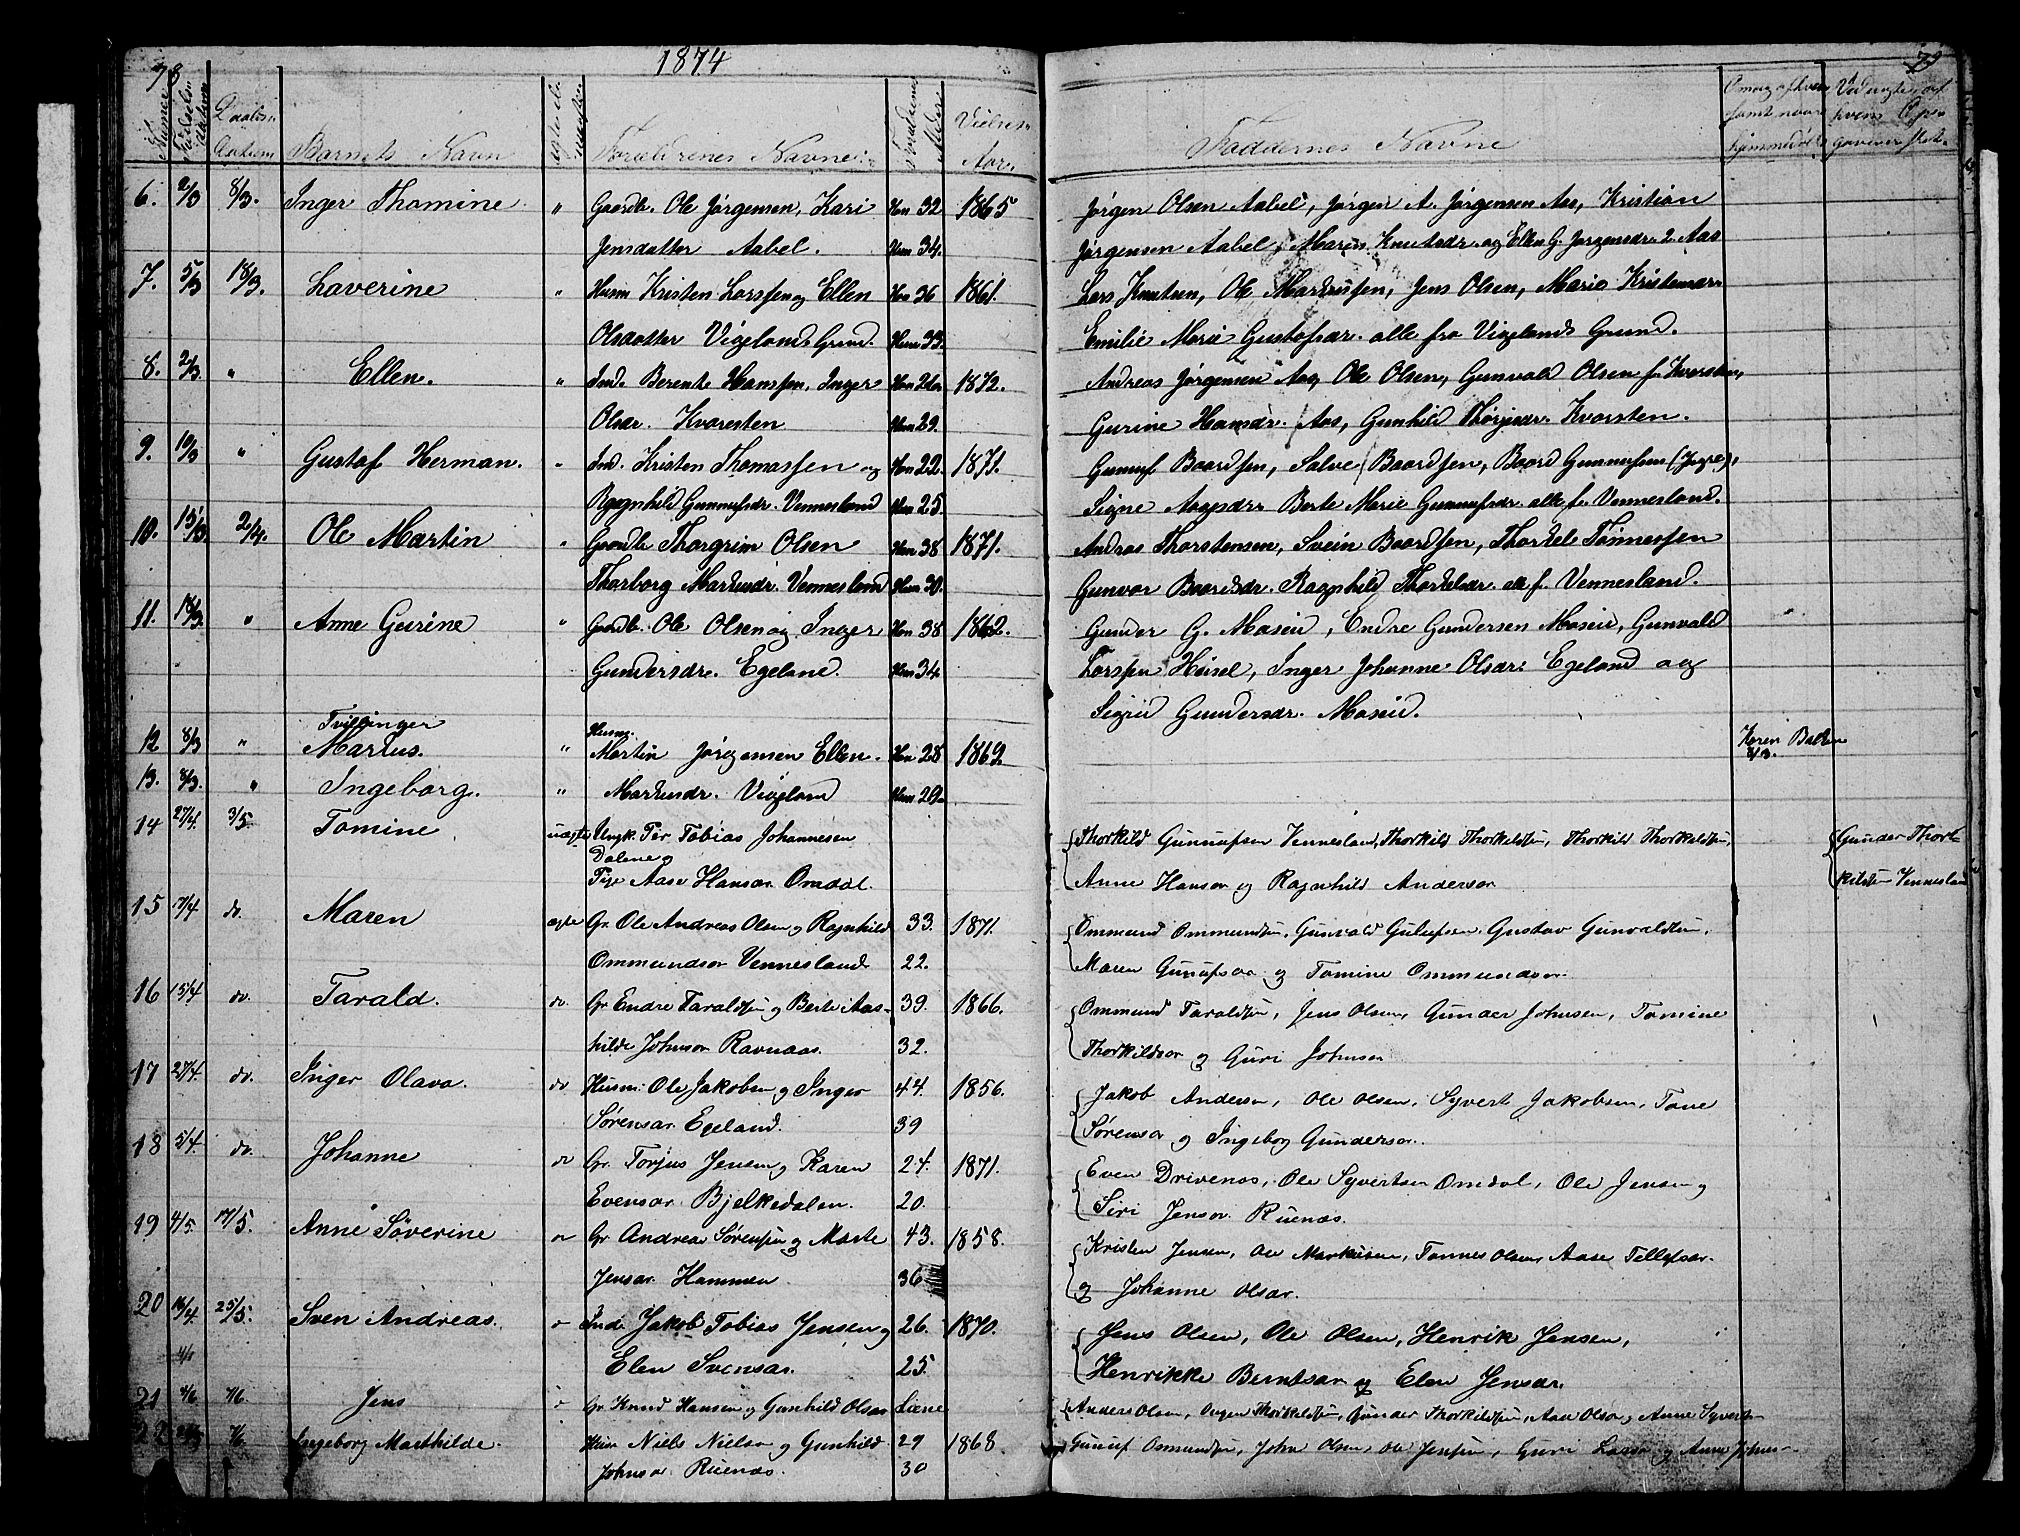 78
1874
79
Nummer
Fødsels
Daabs
Datum
Barnets Navn
Forældrenes Navne
Forældrenes Alder
Vielses
Aar.
Faddernes Navne
samt naar
hjemmedøbt
6. 2/3 8/3. Inger Thomine " Gaardb. Ole Jørgensen, Kari Han 32 1865 Jørgen Olsen Aabel, Jørgen A. Jørgensen Aas, Kristian
Jensdatter Aabel. Hun 34. Jørgensen Aabel, Maren Knutsdr. og Ellen G. Jørgensdr. 2 Aas
7. 5/3 18/3. Laverine " Husm Kristen Larssen og Ellen Han 36 1861. Lars Knutsen, Ole Markussen, Jens Olsen, Maria Kristensdr
Olsdatter Vigelands Grund. Hun 33. Emilie Marie Gustafsdr. alle fra Vigelands Grund.
8. 2/3. " Ellen. " Ind. Berente Hanssen, Inger Han 26 1872. Andreas Jørgensen Aas, Ole Olsen, Gunvald Olsen f. Kvarsten,
Olsdr. Kvarsten Hun 29. Gurine Hansdr. Aas, Gunhild Thorjusdr. Kvarsten.
9. 10/3 " Gustaf Herman. " Ind. Kristen Thomassen og Han 22. 1871. Gunnuf Baardsen, Salve Baardsen, Baard Gunnufsen (Yngre),
Ragnhild Gunnufsdr. Vennesland Hun 25. Signe Berte Marie Gunnufsdr. alle f. Vennesland.
10. 15/3 2/4. Ole Martin " Gaardb Thorgrim Olsen Han 38 1871. Andras Thorstensen, Svein Baardsen, Thorkel Tønnessen
Thorborg Markusdr. Vennesland Hun 30. Gunvor Baardsdr. Ragnhild Thorkelsdr. alle f. Vennesland.
11. 18/3. " Anne Gurine " Gaardb. Ole Olsen og Inger Han 38 1862. Gunder G. Moseid, Endre Gundersen Moseid, Gunvald
Gundersdr. Egeland. Hun 34. Larssen Høisel, Inger Johanne Olsdr. Egeland og
Sigrid Gundersdr. Moseid.
Tvillinger Husm.
12 8/3 " Markus. " Martin Jørgensen Ellen. Han 28 1869. Karen Bakken
8/3.
13. 8/3. " Ingeborg. " Markusdr. Vigeland Hun 29.
14 27/4. 3/5 Tomine uægte Ungk. Per Tobias Johannesen {Thorkild Gunnufsen Vennesland, Thorkild Thorkildsen, Thorkild Thorkildsen, {Gunder Thor-
Dalene og
Pige Aase Hansdr Omdal. Anne Hansdr og Ragnhild Andersdr kildsen Vennesland
15 17/4 do. Maren ægte Gr. Ole Andreas Olsen og Ragnhild 33. 1871. {Ommund Ommundsen, Gunvald Gunufsen, Gustav Gunvaldsen,
Ommundsdr Vennesland 22. Maren Gunufsdr og Tomine Ommundsdr.
16 15/4 do. Tarald. do Gr. Endre Taraldsen og Berte Aas- 39. 1866. {Ommund Taraldsen, Jens Olsen, Gunder Johnsen, Tomine
hilde Johnsdr Ravnaas. 32. Thorkildsdr og Guri Johnsdr
17 27/4. do. Inger Olava. do Husm. Ole Jakobsen og Inger 44. 1856. {Jakob Andersen, Ole Olsen, Syvert Jakobsen, Tone
Sørensdr. Egeland. 39 Sørensdr og Ingeborg Gundersdr.
18 5/4 do. Johanne do Gr. Torjus Jensen og Karen 24. 1871. {Even Drivenes, Ole Syvertsen Omdal, Ole Jensen og
Evensdr. Bjelkedalen. 20. Siri Jensdr. Ruenæs.
19 4/5. 17/5. Anne Søverine do Gr Andreas Sørensen og Marte 43. 1858. {Kristen Jensen, Ole Markusen, Tønnes Olsen, Aase Tellefsdr.
Jensdr. Hammen. 36 og Johanne Olsdr.
20 16/4 25/5. Sven Andreas. Ind. Jakob Tobias Jensen og 26. 1870. {Jens Olsen, Ole Olsen, Henrik Jensen,
Elen Svensdr. 25. Henrikke Berntsdr og Elen Jensdr.
21 4/6 7/6. Jens Gr Knud Hansen og Gunhild Olsdr {Anders Olsen, Thorkildsen, Gunder Thorkildsen, Aase Olsdr, Anne Syverts-
22 Ingeborg Marthilde. Husm Niels Nielsen og Gunhild 29 1868. Gunuf Osmundsen, John Olsen, Ole Jensen, Guri og Anne Johns-
Johnsdr Ruenæs. 30